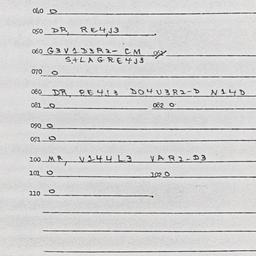 060 O
050 DR, RE4J3
060 G3V1D3R2- CM
S+LAGRE4J3
070 O
080 DR, RE4J3 DO4U3R2-D N14D
081 O 082 O
090 O
091 O
100 MR, V144L3 VAR2-D3
101 O 102 O
110 O